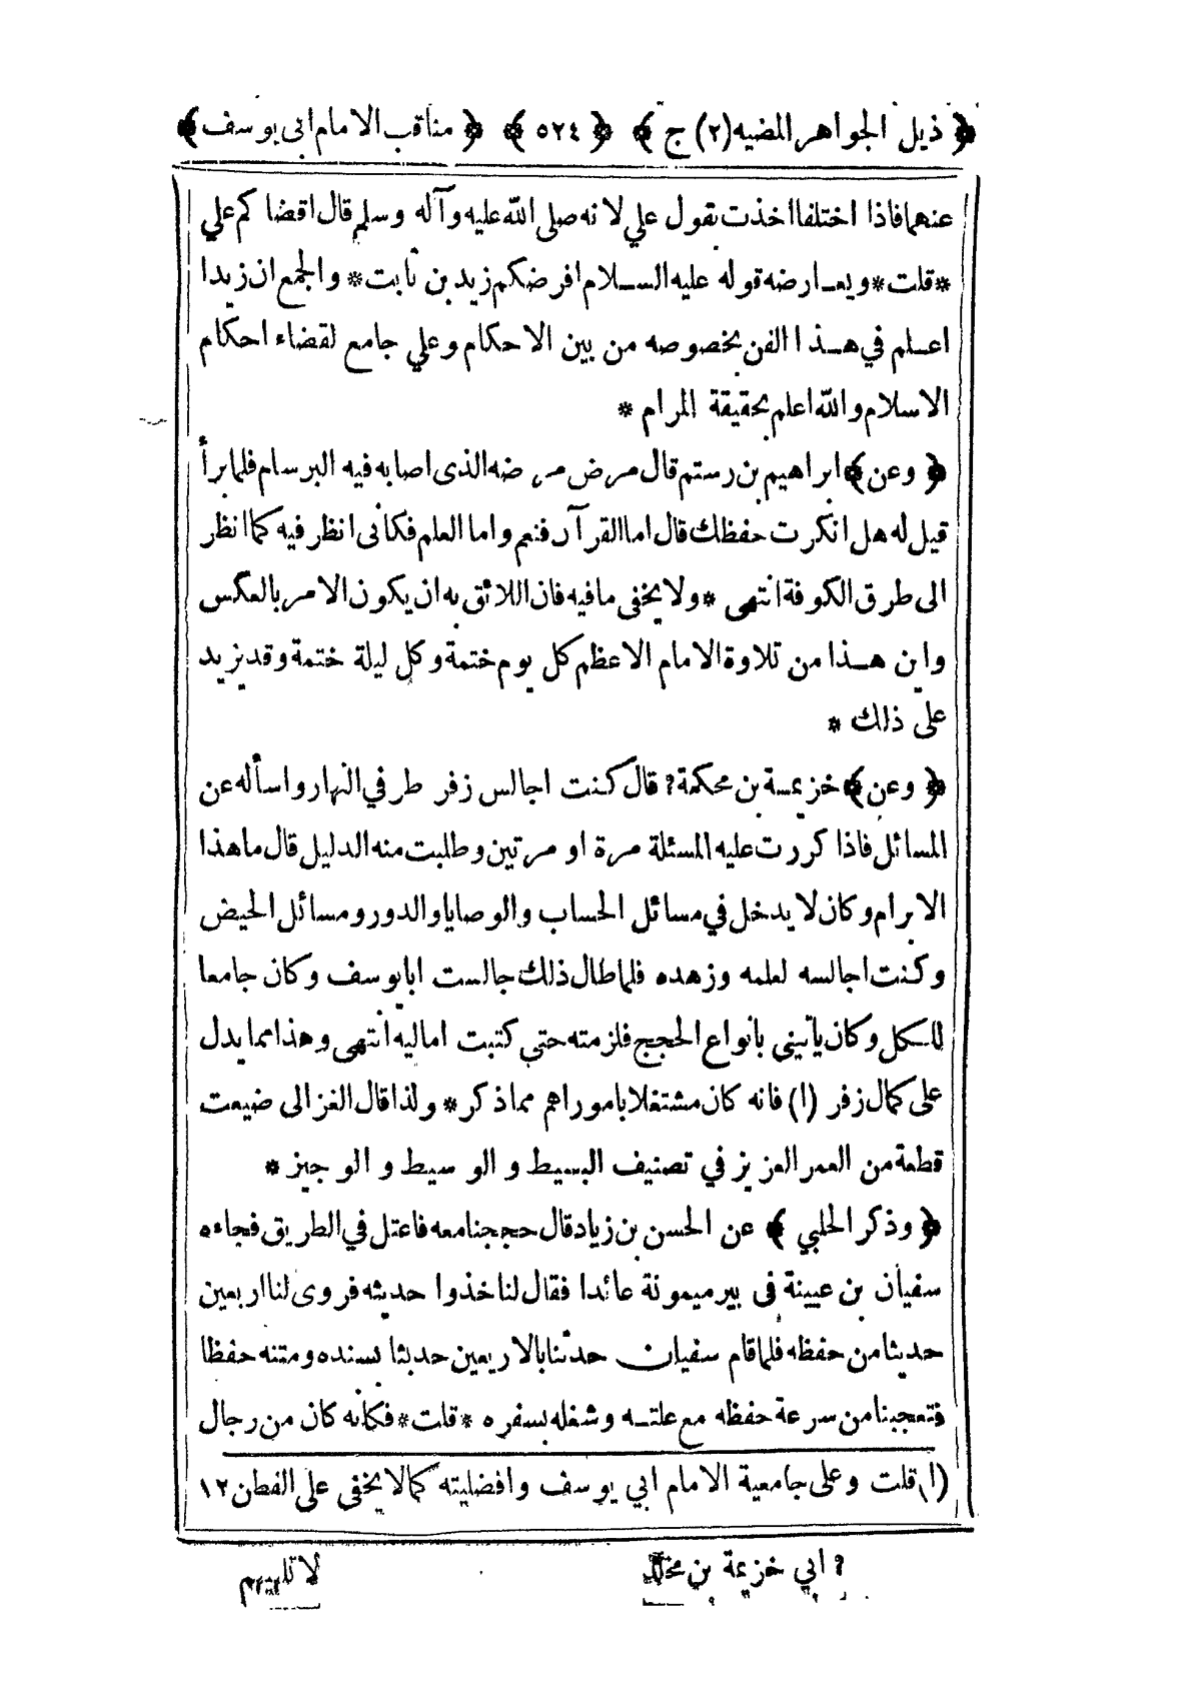 ﴿ ذيل الجواهر المضيه (٢) ج ﴾ ﴿ ٥٢٤ ﴾ ﴿ مناقب الامام ابى يوسف ﴾
عنهما فاذا اختلفا اخذت بقول علي لانه صلى الله عليه وآله وسلم قال اقضا كم علي
*قلت* ويعارضه قوله عليه السلام افرضكم زيد بن ثابت* والجمع ان زيدا
اعلم في هذا الفن بخصوصه من بين الاحكام وعلي جامع لقضاء احكام
الاسلام والله اعلم بحقيقة المرام *
﴿ وعن ﴾ ابراهيم بن رستم قال مرض مرضه الذى اصابه فيه البرسام فلما برأ
قيل له هل انكرت حفظك قال اما القرآن فنعم واما العلم فكأنى انظر فيه كما انظر
الى طرق الكوفة انتهى * ولا يخفى ما فيه فان اللائق به ان يكون الامر بالعكس
واين هذا من تلاوة الامام الاعظم كل يوم ختمة وكل ليلة ختمة وقد يزيد
على ذلك *
﴿ وعن ﴾ خزيمة بن محكمة؟ قال كنت اجالس زفر طرفي النهار واسأله عن
المسائل فاذا كررت عليه المسئلة مرة او مرتين وطلبت منه الدليل قال ما هذا
الابرام وكان لا يدخل في مسائل الحساب والوصايا والدور ومسائل الحيض
وكنت اجالسه لعلمه وزهده فلما طال ذلك جالست ابا يوسف وكان جامعا
للكل وكان يأتيني بأنواع الحجج فلزمته حتى كتبت اماليه انتهى وهذا مما يدل
على كمال زفر (١) فانه كان مشتغلا بامور اهم مما ذكر* ولذا قال الغزالى ضيعت
قطعة من العمر العزيز في تصنيف البسيط و الوسيط و الوجيز *
﴿ وذكر الحلبي ﴾ عن الحسن بن زياد قال حججنا معه فاعتل في الطريق فجاءه
سفيان بن عيينة فى بير ميمونة عائدا فقال لنا خذوا حديثه فروى لنا اربعين
حديثا من حفظه فلما قام سفيان حدثنا بالاربعين حديثا بسنده ومتنه حفظا
فتعجبنا من سرعة حفظه مع علته وشغله بسفره *قلت* فكأنه كان من رجال
(١) قلت وعلى جامعية الامام ابي يوسف وافضليته كما لا يخفى على الفطن ١٢
؟ ابي خزيمة بن